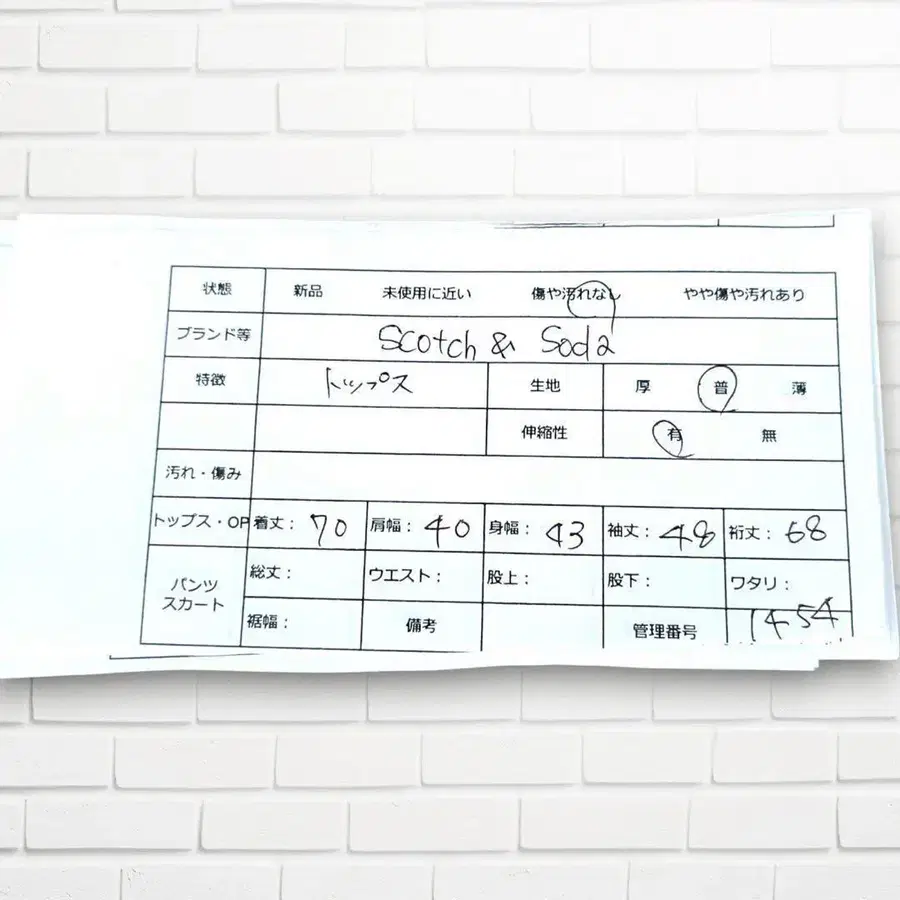 状態 新品 未使用に近い 傷や汚れなし やや傷や汚れあり
ブランド等 Scotch & Soda
特徴 トップス 生地 厚 普 薄
伸縮性 有 無
汚れ・傷み
トップス・OP 着丈： 70 肩幅： 40 身幅： 43 袖丈： 48 裄丈： 68
パンツ
スカート
総丈： ウエスト： 股上： 股下： ワタリ：
裾幅： 備考 管理番号 1454